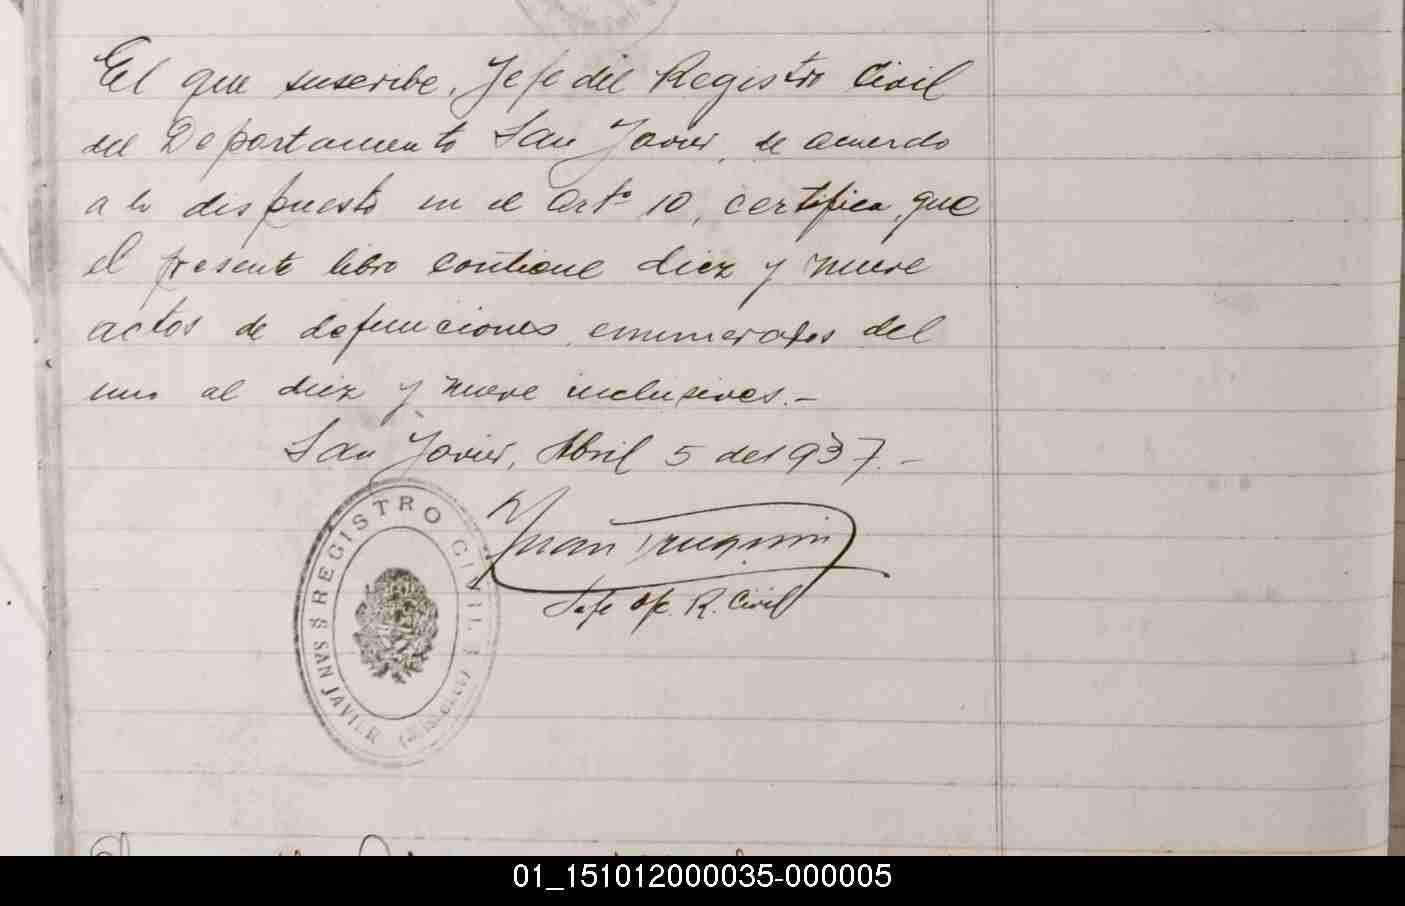 El que suscribe, Jefe del Registro Civil
del Departamento San Javier, de acuerdo
a lo dispuesto en el Artº 10, certifica, que
el presente libro contiene diez y nueve
actos de defunciones, enumerados del
uno al diez y nueve inclusives.-
San Javier, Abril 5 de 1937.-
Juan
Jefe Of. R. Civil
REGISTRO CIVIL
SAN JAVIER
01_151012000035-000005